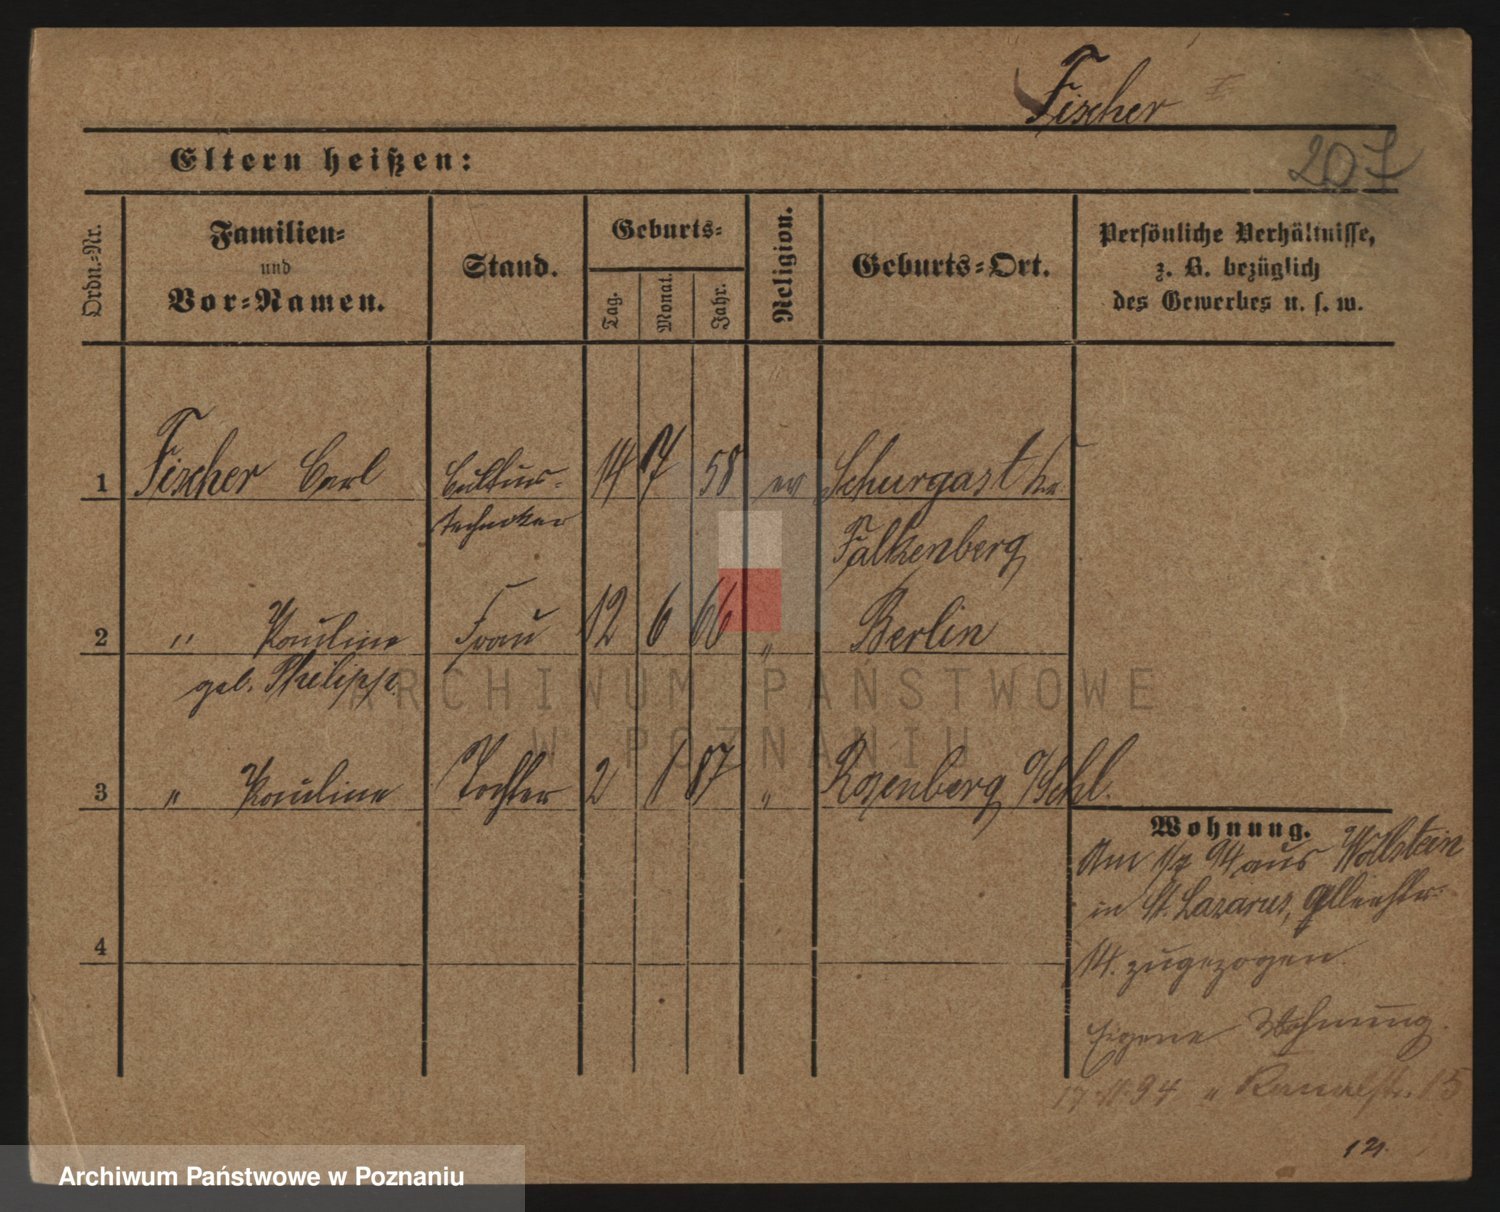 Fischer
207
Eltern heißen:
Ordn.-Nr.
Familien-
und
Vor-Namen.
Stand.
Geburts-
Tag.
Monat.
Jahr.
Religion.
Geburts-Ort.
Persönliche Verhältnisse,
z. B. bezüglich
des Gewerbes u. s. w.
1 Fischer Carl Cultur- 14 7 58 ev Schurgast Kr.
techniker Falkenberg
2 " Pauline Frau 12 6 66 " Berlin
geb. Philipp
3 " Pauline Tochter 2 1 87 " Rosenberg O/Schl.
4
Wohnung.
Am 1/7 94 aus Wollstein
in St. Lazarus,
14. zugezogen.
Eigene Wohnung.
17.11.94 n Kanalstr. 15
ARCHIWUM PAŃSTWOWE
W POZNANIU
Archiwum Państwowe w Poznaniu